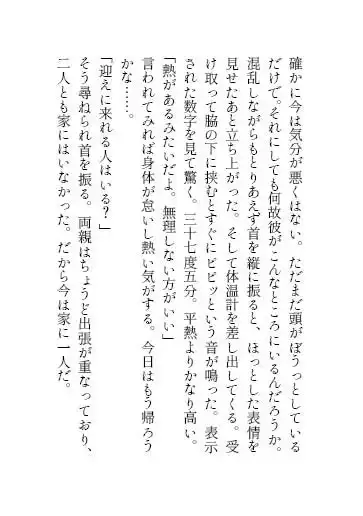 確かに今は気分が悪くはない。ただまだ頭がぼうっとしている
だけで。それにしても何故彼がこんなところにいるんだろうか。
混乱しながらもとりあえず首を縦に振ると、ほっとした表情を
見せたあと立ち上がった。そして体温計を差し出してくる。受
け取って脇の下に挟むとすぐにピピッという音が鳴った。表示
された数字を見て驚く。三十七度五分。平熱よりかなり高い。
「熱があるみたいだよ。無理しない方がいい」
言われてみれば身体が怠いし熱い気がする。今日はもう帰ろう
かな……。
「迎えに来れる人はいる？」
そう尋ねられ首を振る。両親はちょうど出張が重なっており、
二人とも家にはいなかった。だから今は家に一人だ。